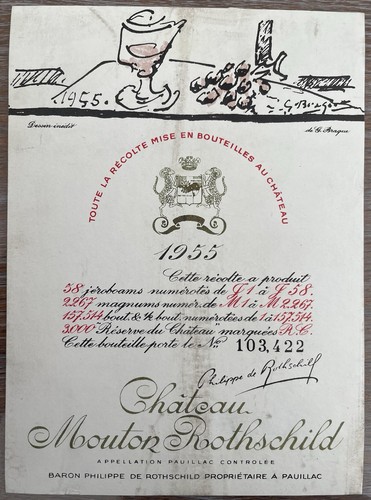 1955.
G. Braque
Dessin inédit
de G. Braque
TOUTE LA RÉCOLTE MISE EN BOUTEILLES AU CHÂTEAU
1955
Cette récolte a produit
58 jéroboams numérotés de J 1 à J 58.
2267 magnums numér. de M 1 à M 2.267.
157.514 bout. & ½ bout. numérotées de 1 à 157.514.
3.000 "Réserve du Château" marquées R.C.
Cette bouteille porte le No 103,422
Philippe de Rothschild
Château
Mouton Rothschild
APPELLATION PAUILLAC CONTROLÉE
BARON PHILIPPE DE ROTHSCHILD PROPRIÉTAIRE A PAUILLAC